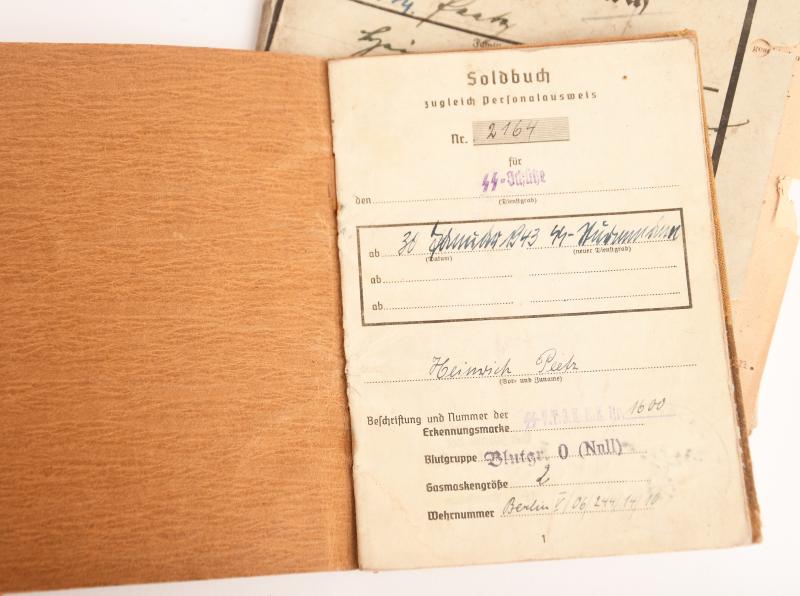 Soldbuch
zugleich Personalausweis
Nr. 2164
für
den SS-Schütze
(Dienstgrad)
ab 30 Januar 1943
(Datum) (neuer Dienstgrad)
ab
ab
Heinrich Peetz
(Vor- und Zuname)
Beschriftung und Nummer der
Erkennungsmarke 1600
Blutgruppe Blutgr. 0 (Null)
Gasmaskengröße 2
Wehrnummer Berlin V/06/244/14/10
1